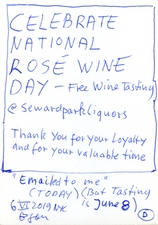 CELEBRATE
NATIONAL
ROSÉ WINE
DAY - Free Wine Tasting
@ sewardparkliquors
Thank you for your Loyalty
and for your valuable time
"Emailed to me"
(TODAY) (But Tasting
6 VI 2019 NYC is June 8)
D